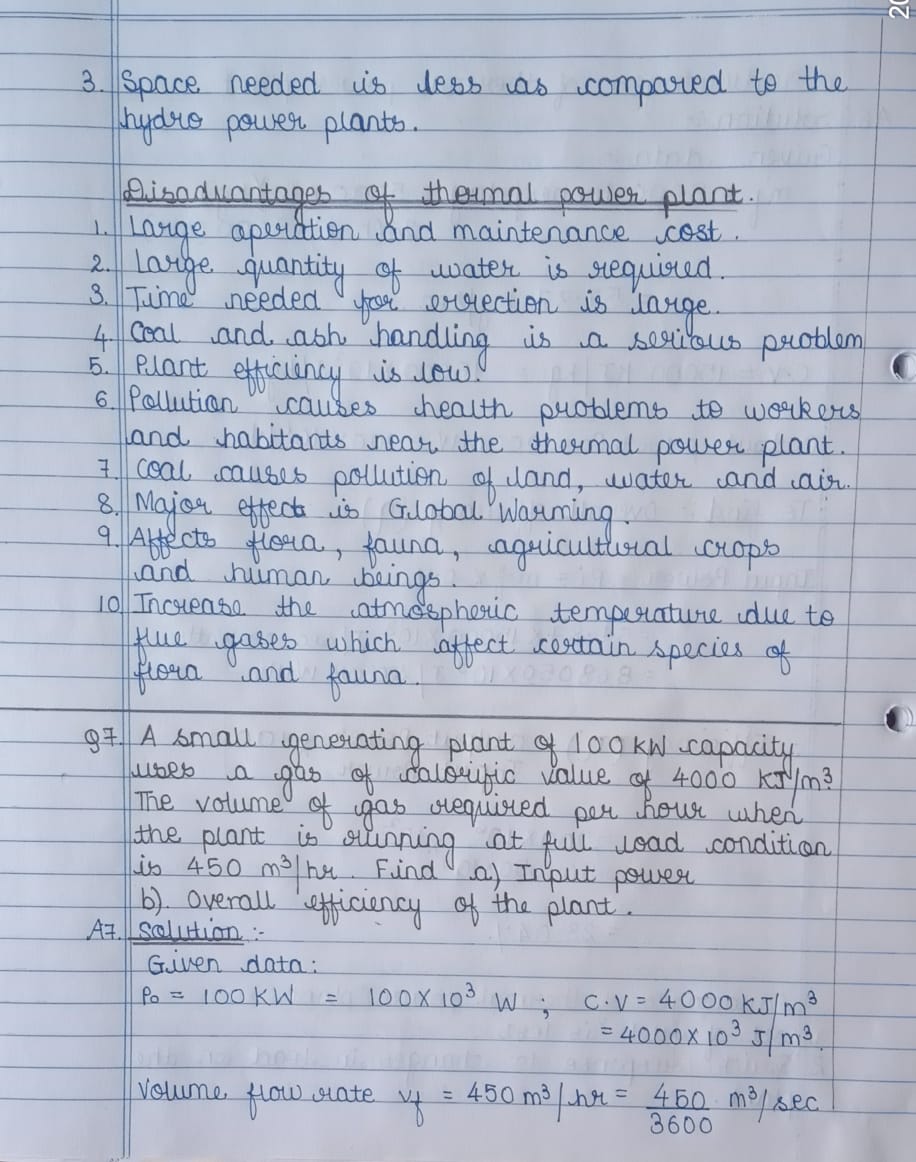 20
3. Space needed is less as compared to the
hydro power plants.
Disadvantages of thermal power plant.
1. Large aperation and maintenance cost.
2. Large quantity of water is required.
3. Time needed for errection is large.
4. Coal and ash handling is a serious problem
5. Plant efficiency is low.
6. Pollution causes health problems to workers
and habitants near the thermal power plant.
7. Coal causes pollution of land, water and air.
8. Major effect is Global Warming.
9. Affects flora, fauna, agricultural crops
and human beings.
10 Increase the atmospheric temperature due to
flue gases which affect certain species of
flora and fauna.
Q7. A small generating plant of 100 kW capacity
uses a gas of calorific value of 4000 KJ/m³.
The volume of gas required per hour when
the plant is running at full load condition
is 450 m³/hr. Find a) Input power
b). Overall efficiency of the plant.
A7. Solution :-
Given data:
P₀ = 100 KW = 100 X 10³ W ; C.V = 4000 KJ/m³
= 4000 X 10³ J/m³
Volume flow rate Vf = 450 m³/hr = 450/3600 m³/sec